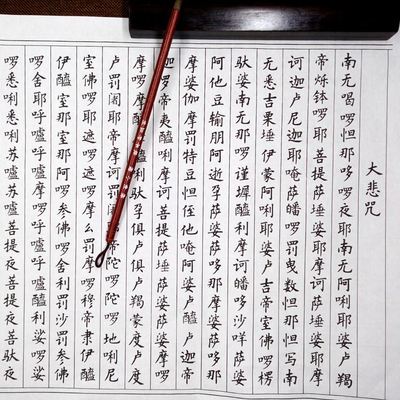 大悲咒
南无喝啰怛那哆啰夜耶南无阿利耶婆卢羯
帝烁钵啰耶菩提萨埵婆耶摩诃萨埵婆耶摩
诃迦卢尼迦耶唵萨皤啰罚曳数怛那怛写南
无悉吉栗埵伊蒙阿利耶婆卢吉帝室佛啰楞
驮婆南无那啰谨墀醯利摩诃皤哆沙咩萨婆
阿他豆输朋阿逝孕萨婆萨哆那摩婆萨哆那
摩婆伽摩罚特豆怛侄他唵阿婆卢醯卢迦帝
迦罗帝夷醯利摩诃菩提萨埵萨婆萨婆摩啰
摩啰摩醯摩醯利驮孕俱卢俱卢羯蒙度卢度
卢罚阇耶帝摩诃罚阇耶帝陀啰陀啰地利尼
室佛啰耶遮啰遮啰摩么罚摩啰穆帝隶伊醯
伊醯室那室那阿啰参佛啰舍利罚沙罚参佛
啰舍耶呼嚧呼嚧摩啰呼嚧呼嚧醯利娑啰娑
啰悉唎悉唎苏嚧苏嚧菩提夜菩提夜菩驮